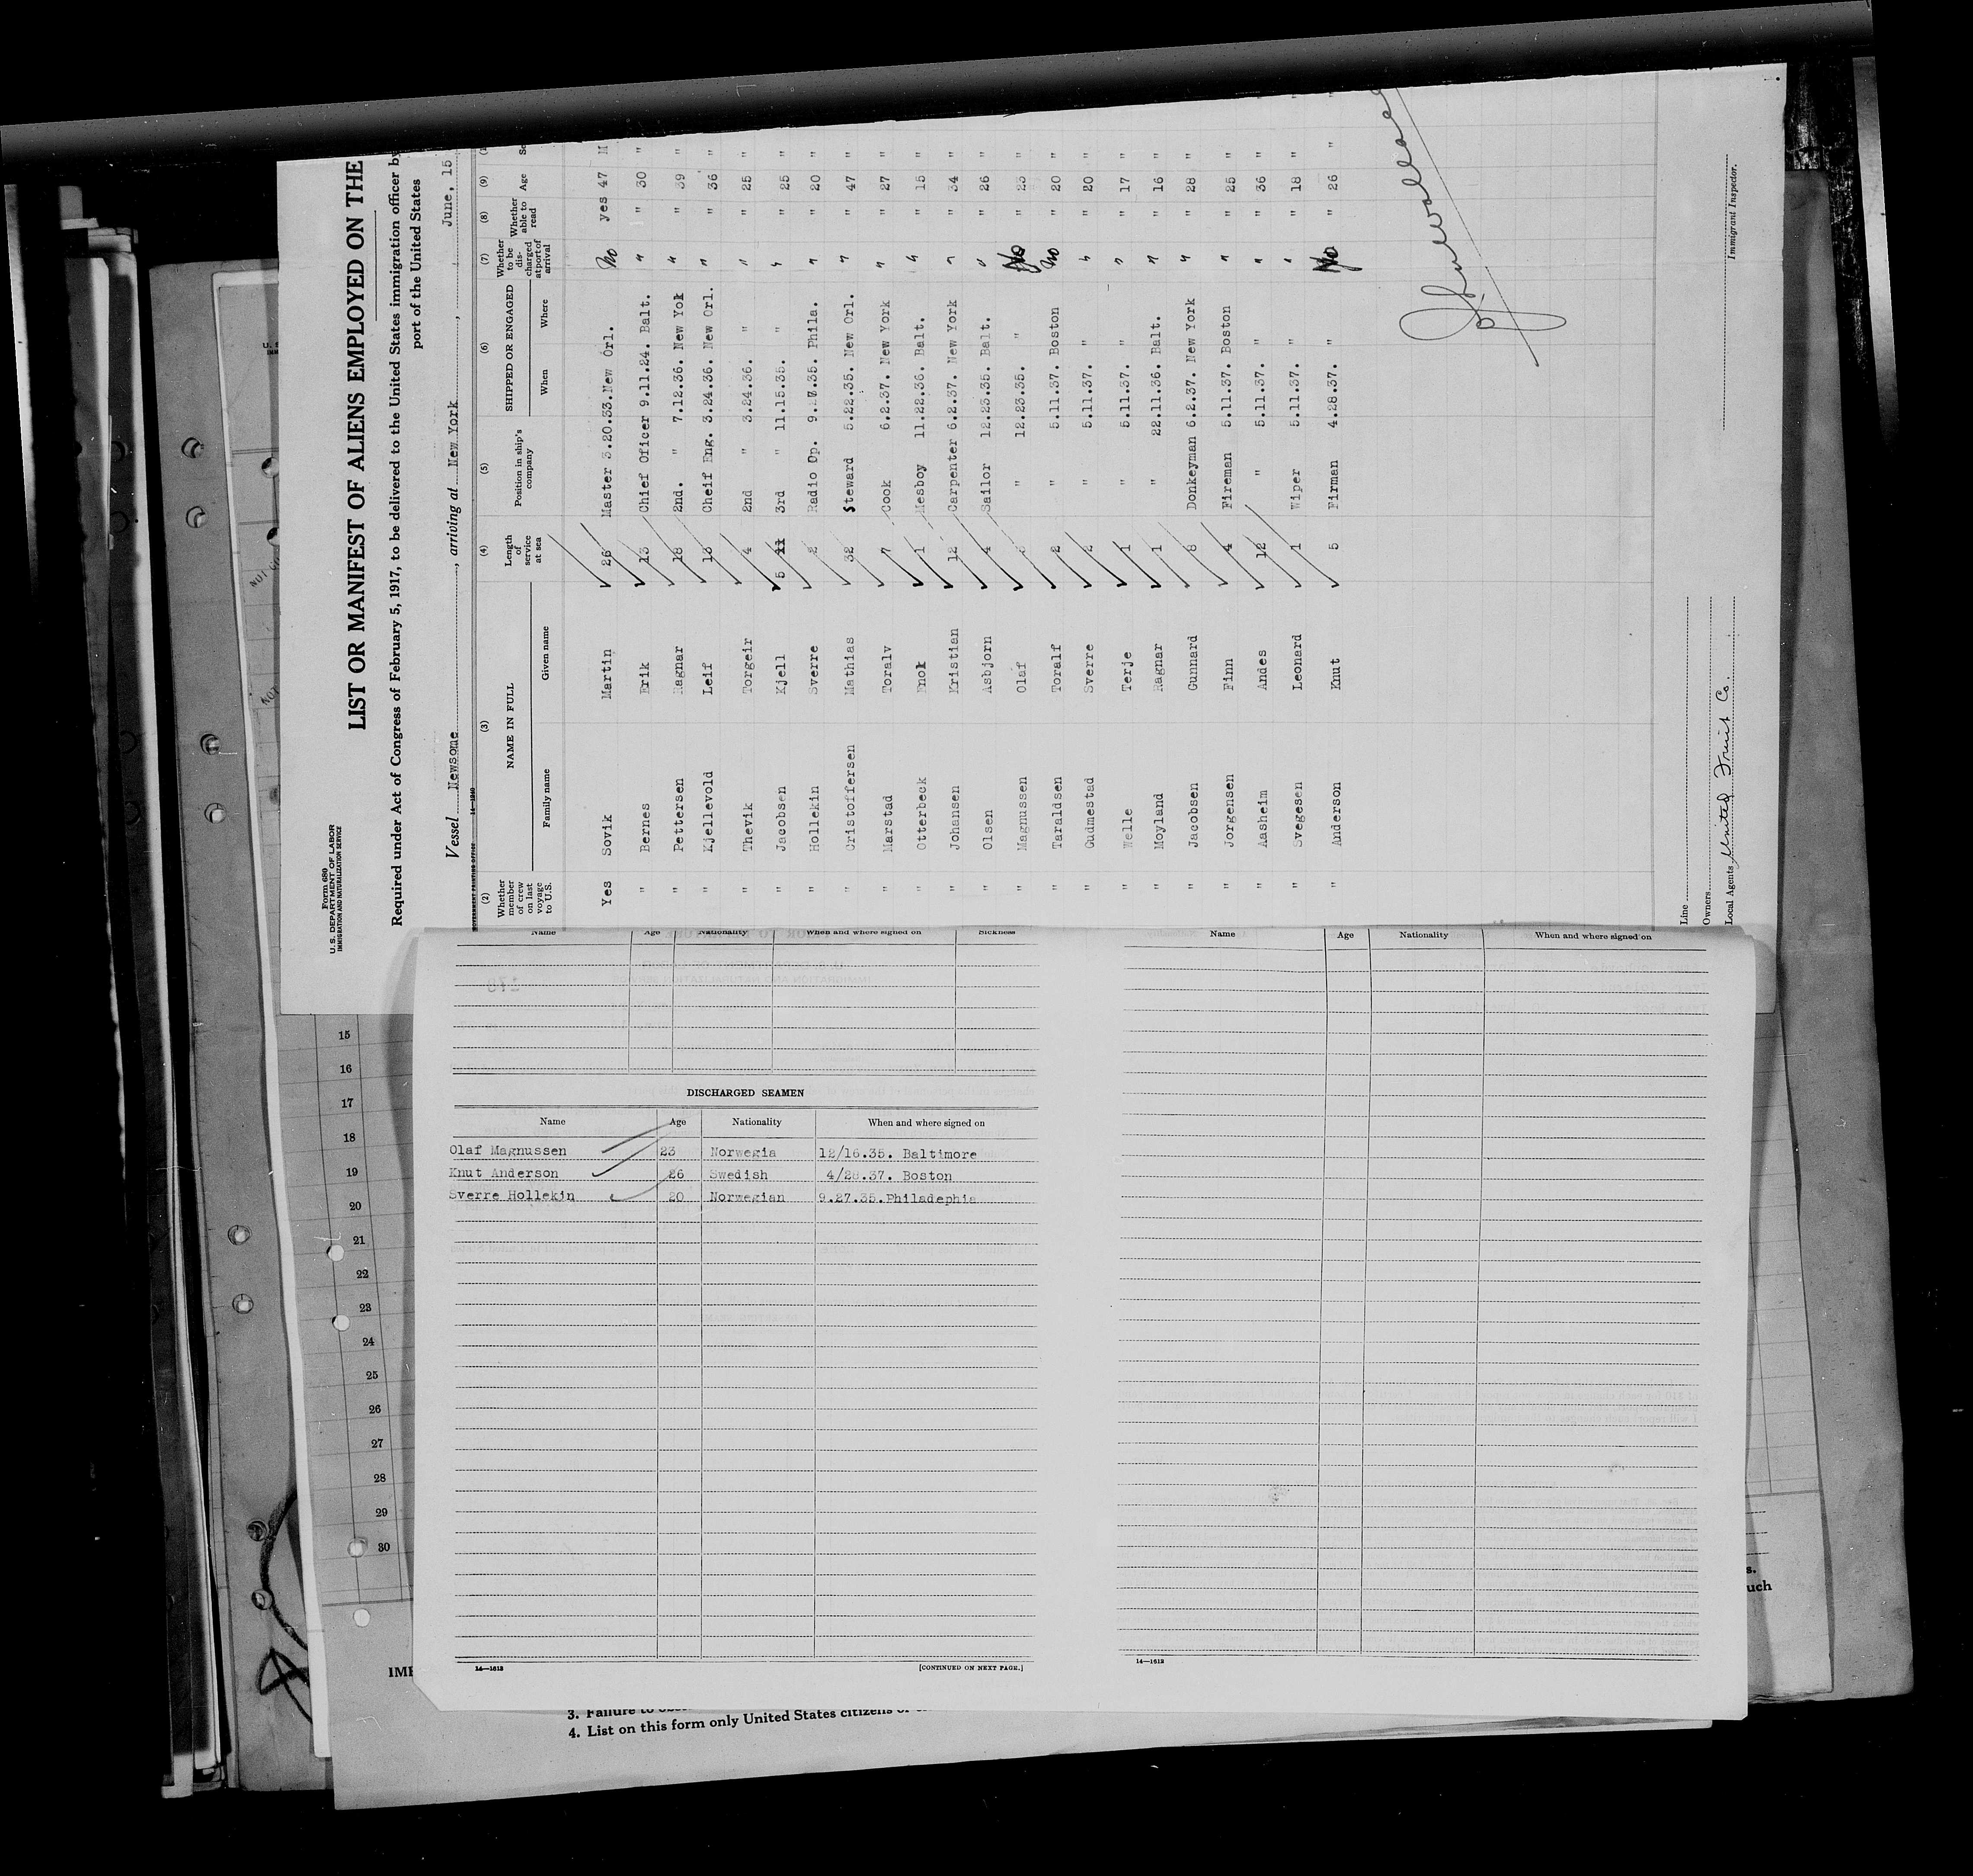 Form 680
U.S. DEPARTMENT OF LABOR
IMMIGRATION AND NATURALIZATION SERVICE
LIST OR MANIFEST OF ALIENS EMPLOYED ON THE
Required under Act of Congress of February 5, 1917, to be delivered to the United States immigration officer by
port of the United States
Vessel Newsome, arriving at New York, June, 15
(2) (3) (4) (5) (6) (7) (8) (9)
Whether member of crew on last voyage to U.S. NAME IN FULL Family name Given name Length of service at sea Position in ship's company SHIPPED OR ENGAGED When Where Whether to be discharged at port of arrival Whether able to read Age
Yes Sovik Martin 26 Master 3.20.33. New Orl. No yes 47 M
" Bernes Erik 13 Chief Officer 9.11.24. Balt. " " 30 "
" Pettersen Ragnar 18 2nd. " 7.12.36. New Yok " " 39 "
" Kjellevold Leif 13 Cheif Eng. 3.24.36. New Orl. " " 36 "
" Thevik Torgeir 4 2nd " 3.24.36. " " " 25 "
" Jacobsen Kjell 5 11 3rd " 11.15.35. " " " 25 "
" Hollekin Sverre 2 Radio Op. 9.27.35. Phila. " " 20 "
" Cristoffersen Mathias 32 Steward 5.22.35. New Orl. " " 47 "
" Marstad Toralv 7 Cook 6.2.37. New York " " 27 "
" Otterbeck Enok 1 Mesboy 11.22.36. Balt. " " 15 "
" Johansen Kristian 12 Carpenter 6.2.37. New York " " 34 "
" Olsen Asbjorn 4 Sailor 12.23.35. Balt. " " 26 "
" Magnussen Olaf " 12.23.35. " " 23 "
" Taraldsen Toralf 2 " 5.11.37. Boston No " 20 "
" Gudmestad Sverre 2 " 5.11.37. " " " 20 "
" Welle Terje 1 " 5.11.37. " " " 17 "
" Moyland Ragnar 1 " 22.11.36. Balt. " " 16 "
" Jacobsen Gunnard 8 Donkeyman 6.2.37. New York " " 28 "
" Jorgensen Finn 4 Fireman 5.11.37. Boston " " 25 "
" Aasheim Andes 12 " 5.11.37. " " " 36 "
" Svegesen Leonard 1 Wiper 5.11.37. " " " 18 "
" Anderson Knut 5 Firman 4.28.37. " " 26 "
Line
Owners
Local Agents United Fruit Co.
Immigrant Inspector.
Name Age Nationality When and where signed on Sickness
DISCHARGED SEAMEN
Name Age Nationality When and where signed on
Olaf Magnussen 23 Norwegia 12/16.35. Baltimore
Knut Anderson 26 Swedish 4/28.37. Boston
Sverre Hollekin 20 Norwegian 9.27.35.Philadephia
14—1613
[CONTINUED ON NEXT PAGE.]
Name Age Nationality When and where signed on
14—1613
15
16
17
18
19
20
21
22
23
24
25
26
27
28
29
30
3. Failure to
4. List on this form only United States citizens